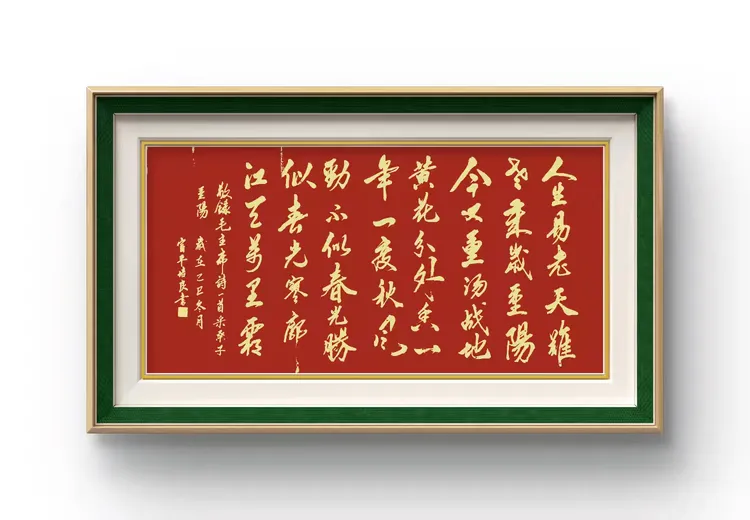 人生易老天難
老歲歲重陽
今又重陽战地
黄花分外香一
年一度秋风
勁不似春光勝
似春光寥廓
江天萬里霜
敬錄毛主席詩一首采桑子
重陽 歲在乙巳冬月
富平培良書